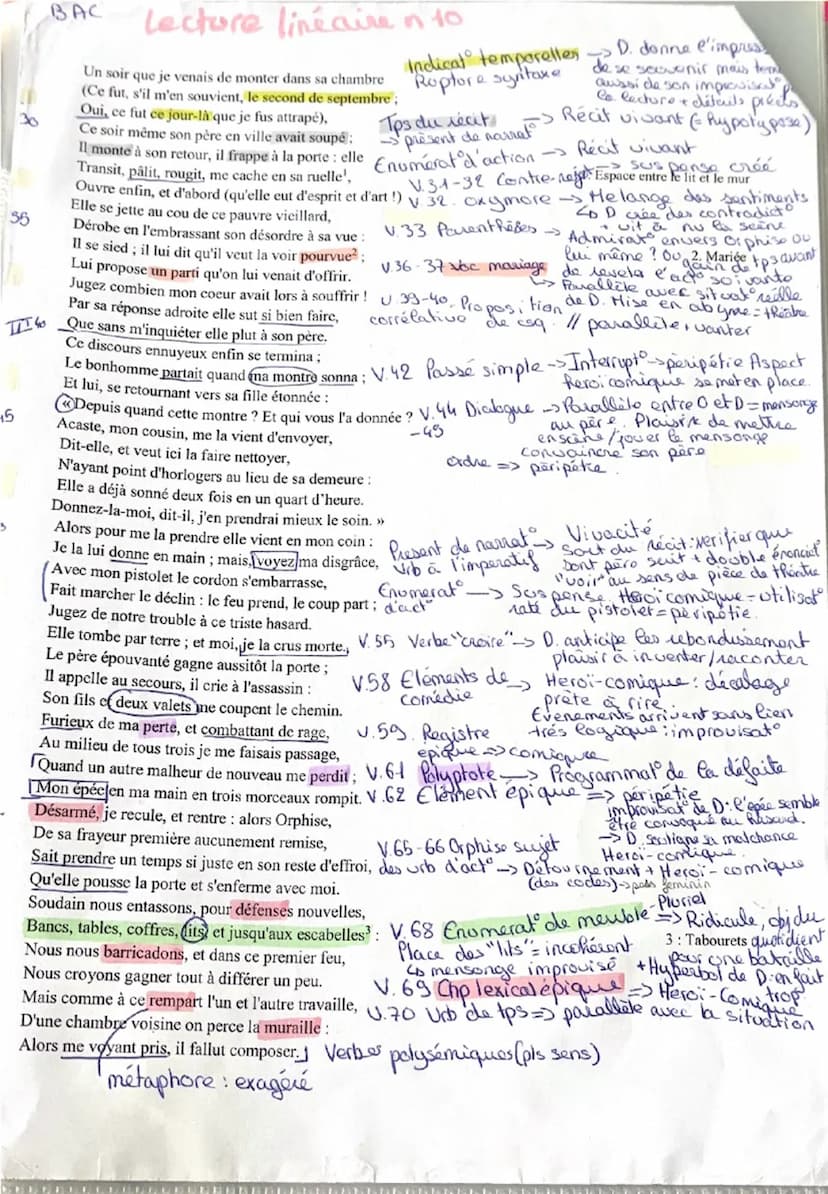 BAC
Lecture linéaire n 10
Un soir que je venais de monter dans sa chambre
(Ce fut, s'il m'en souvient, le second de septembre ;
30
Oui, ce fut ce jour-là que je fus attrapé),
Ce soir même son père en ville avait soupé ;
Il monte à son retour, il frappe à la porte : elle
Transit, pâlit, rougit, me cache en sa ruelle¹,
Ouvre enfin, et d'abord (qu'elle eut d'esprit et d'art !)
35
Elle se jette au cou de ce pauvre vieillard,
Dérobe en l'embrassant son désordre à sa vue :
Il se sied ; il lui dit qu'il veut la voir pourvue² ;
Lui propose un parti qu'on lui venait d'offrir.
Jugez combien mon coeur avait lors à souffrir !
Par sa réponse adroite elle sut si bien faire,
III 40
Que sans m'inquiéter elle plut à son père.
Ce discours ennuyeux enfin se termina ;
Le bonhomme partait quand ma montre sonna ;
Et lui, se retournant vers sa fille étonnée :
«Depuis quand cette montre ? Et qui vous l'a donnée ?
Acaste, mon cousin, me la vient d'envoyer,
Dit-elle, et veut ici la faire nettoyer,
N'ayant point d'horlogers au lieu de sa demeure :
Elle a déjà sonné deux fois en un quart d'heure.
Donnez-la-moi, dit-il, j'en prendrai mieux le soin. »
Alors pour me la prendre elle vient en mon coin :
Je la lui donne en main ; mais, voyez ma disgrâce,
Avec mon pistolet le cordon s'embarrasse,
Fait marcher le déclin : le feu prend, le coup part ;
Jugez de notre trouble à ce triste hasard.
Elle tombe par terre ; et moi, je la crus morte.
Le père épouvanté gagne aussitôt la porte ;
Il appelle au secours, il crie à l'assassin :
Son fils et deux valets me coupent le chemin.
Furieux de ma perte, et combattant de rage,
Au milieu de tous trois je me faisais passage,
Quand un autre malheur de nouveau me perdit ;
Mon épée en ma main en trois morceaux rompit.
Désarmé, je recule, et rentre : alors Orphise,
De sa frayeur première aucunement remise,
Sait prendre un temps si juste en son reste d'effroi,
Qu'elle pousse la porte et s'enferme avec moi.
Soudain nous entassons, pour défenses nouvelles,
Bancs, tables, coffres, lits, et jusqu'aux escabelles³ :
Nous nous barricadons, et dans ce premier feu,
Nous croyons gagner tout à différer un peu.
Mais comme à ce rempart l'un et l'autre travaille,
D'une chambre voisine on perce la muraille :
Alors me voyant pris, il fallut composer.
métaphore : exagéré
Indicat° temporelles
Roptore syntaxe
-> D. donne l'impres
de se souvenir mais
aussi de son improvisat°
la lecture + détails précis
Tps du récit -> Récit vivant (= hypotypose)
-> présent de narrat°
Enumérat° d'action -> Récit vivant
-> suspense créé
V.31-32 Contre-rejet
Espace entre le lit et le mur
V.32. oxymore -> Melange des sentiments
D crée des contradict°
+ vit à nu la scène
V.33 Parenthèses -> Admirat° envers Orphise ou
lui même ? Ou gain de tps avant
2. Mariée
de revela l'act° soivante
V.36-37 voc mariage
Parallèle avec situat° réelle
de D. Mise en abyme = théâtre
V.39-40. Proposition
corrélative de csq. // parallèle + vanter
V.42 Passé simple -> Interrupt° -> péripétie Aspect
heroi comique se met en place.
V.44 Dialogue -> Parallèle entre O et D = mensonge
-49
au père. Plaisir de mettre
en scène/jouer le mensonge
convaincre son père
ordre => péripétie.
Present de narrat° -> Vivacité
Vrb à l'imperatif
Sort du récit: verifier que
sont père suit + double énonciat°
"voir" au sens de pièce de théâtre
Enumerat° d'act° -> Suspense. Heroi comique = utilisat°
raté du pistolet = péripétie.
V.55 Verbe "croire" -> D. anticipe les rebondissement
plaisir à inventer/raconter
V.58 Eléments de comédie -> Heroï-comique : décalage
prête à rire.
Evenements arrivent sans lien
très logique : improvisat°
V.59. Registre
épique => comique
V.61 Polyptote -> Programmat° de la défaite
V.62 Elément épique => péripétie
improvisat° de D: l'épée semble
être convoqué au hasard.
-> D. souligne sa malchance
Heroï-comique.
V.65-66 Orphise sujet
des vrb d'act° -> Détournement + Heroï-comique
(des codes) -> pers feminin
Pluriel
V.68 Enumerat° de meuble => Ridicule, obj du
quotidien
3 : Tabourets
Place des "lits" = incohérent
pour une bataille
mensonge improvisé + Hyperbol de D: en fait
trop
V.69 Chp lexical épique => Heroï-Comique
V.70 Vrb de tps => parallèle avec la situation
Verbes polysémiques (pls sens)